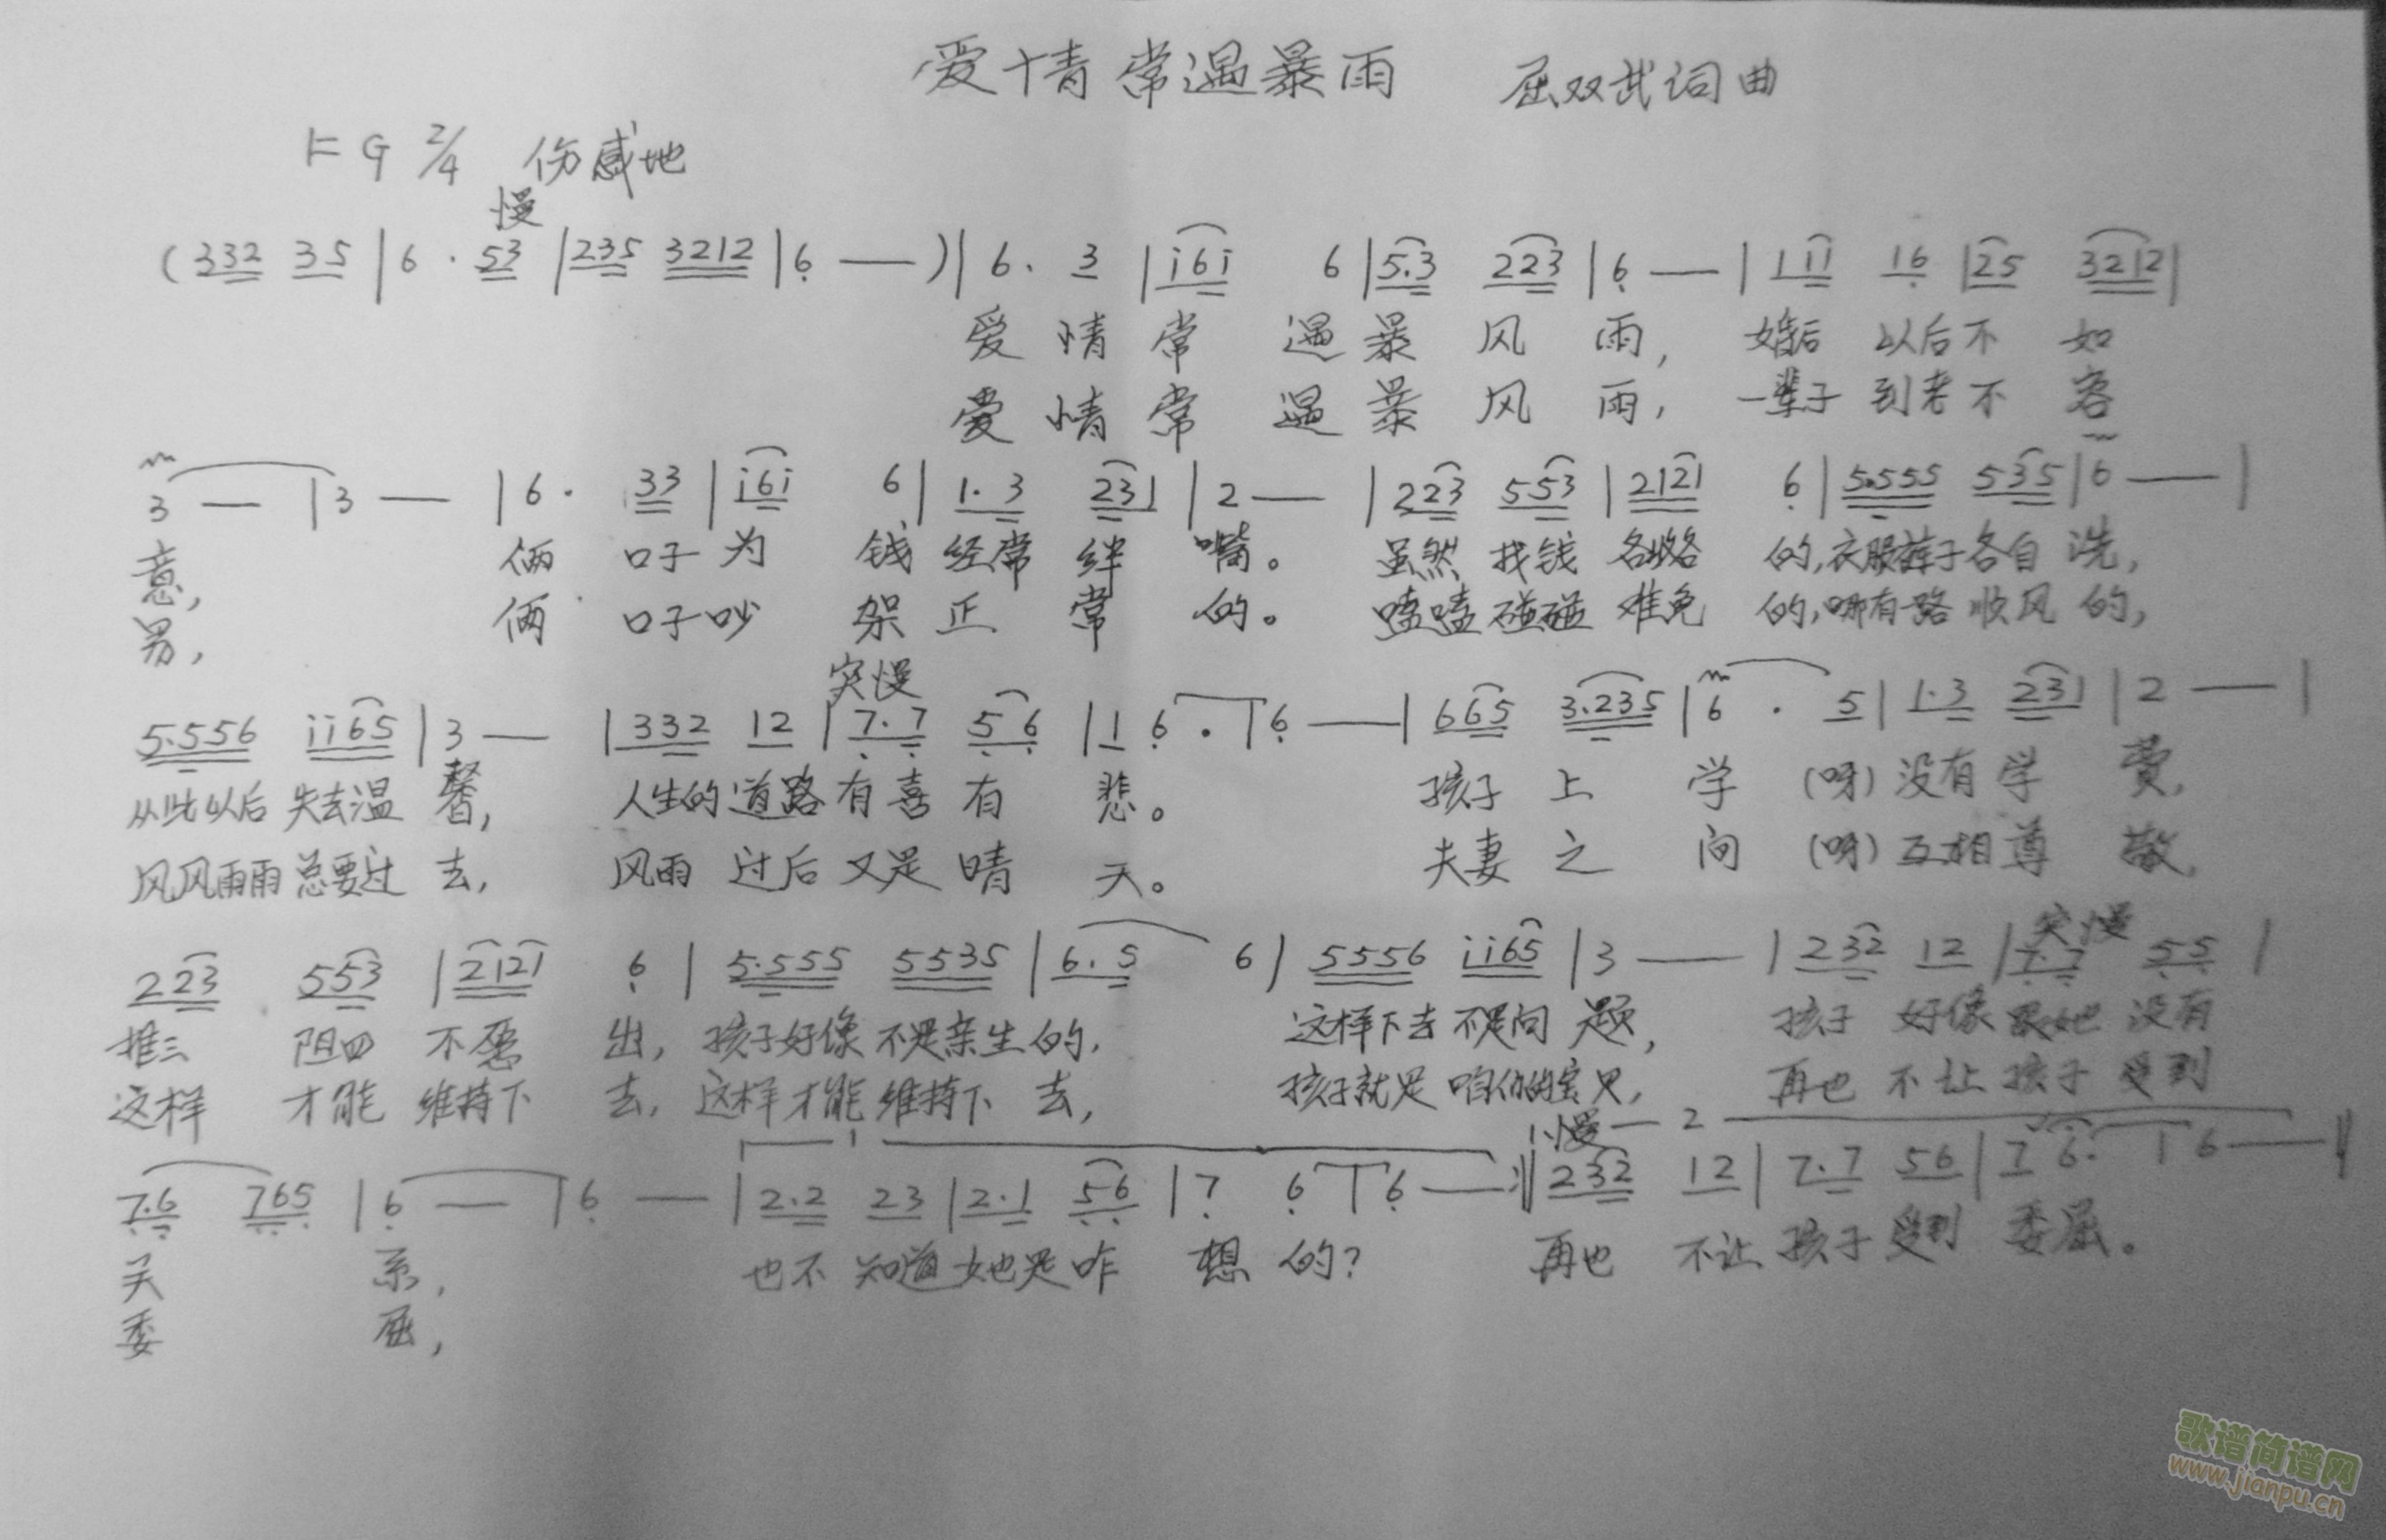 爱情常遇暴雨 屈双武词曲
1=G 2/4 伤感地
慢
(332 35 | 6 · 53 | 235 3212 | 6 — ) | 6 · 3 | i6i 6 | 5·3 223 | 6 — | 1ii 16 | 25 3212 |
爱 情 常 遇 暴 风 雨, 婚后 以后不 如
爱 情 常 遇 暴 风 雨, 一辈子 到老不 客
3 — | 3 — | 6 · 33 | i6i 6 | 1·3 231 | 2 — | 223 553 | 2121 6 | 5·555 535 | 6 — |
意, 俩 口子 为 钱 经常 绊 嘴。 虽然 找钱 各略 的,衣服裤子各自 洗,
男, 俩 口子吵 架 正 常 的。 嗑嗑碰碰 难免 的,哪有一路 顺风 的,
突慢
5·556 ii65 | 3 — | 332 12 | 7·7 56 | 1 6 · | 6 — | 665 3·235 | 6 · 5 | 1·3 231 | 2 — |
从此以后 失去温 馨, 人生的道路有喜 有 悲。 孩子 上 学 (呀)没有学 费,
风风雨雨总要过 去, 风雨 过后 又是 晴 天。 夫妻 之 间 (呀)互相尊 敬,
突慢
223 553 | 2121 6 | 5·555 5535 | 6·5 6 | 5556 ii65 | 3 — | 232 12 | 7·7 55 |
推三 阻四 不愿 出, 孩子好像 不是亲生的, 这样下去 不是问 题, 孩子 好像 跟她 没有
这样 才能 维持下 去, 这样才能 维持下 去, 孩子就是 咱们的宝贝, 再也 不让 孩子 受到
1 慢 2
7·6 765 | 6 — | 6 — | 2·2 23 | 2·1 56 | 7 6 | 6 — :‖ 232 12 | 7·7 56 | 7 6· | 6 — ‖
关 系, 也不 知道 她是咋 想 的? 再也 不让 孩子 受到 委屈。
委 屈,
歌谱简谱网
www.jianpu.cn